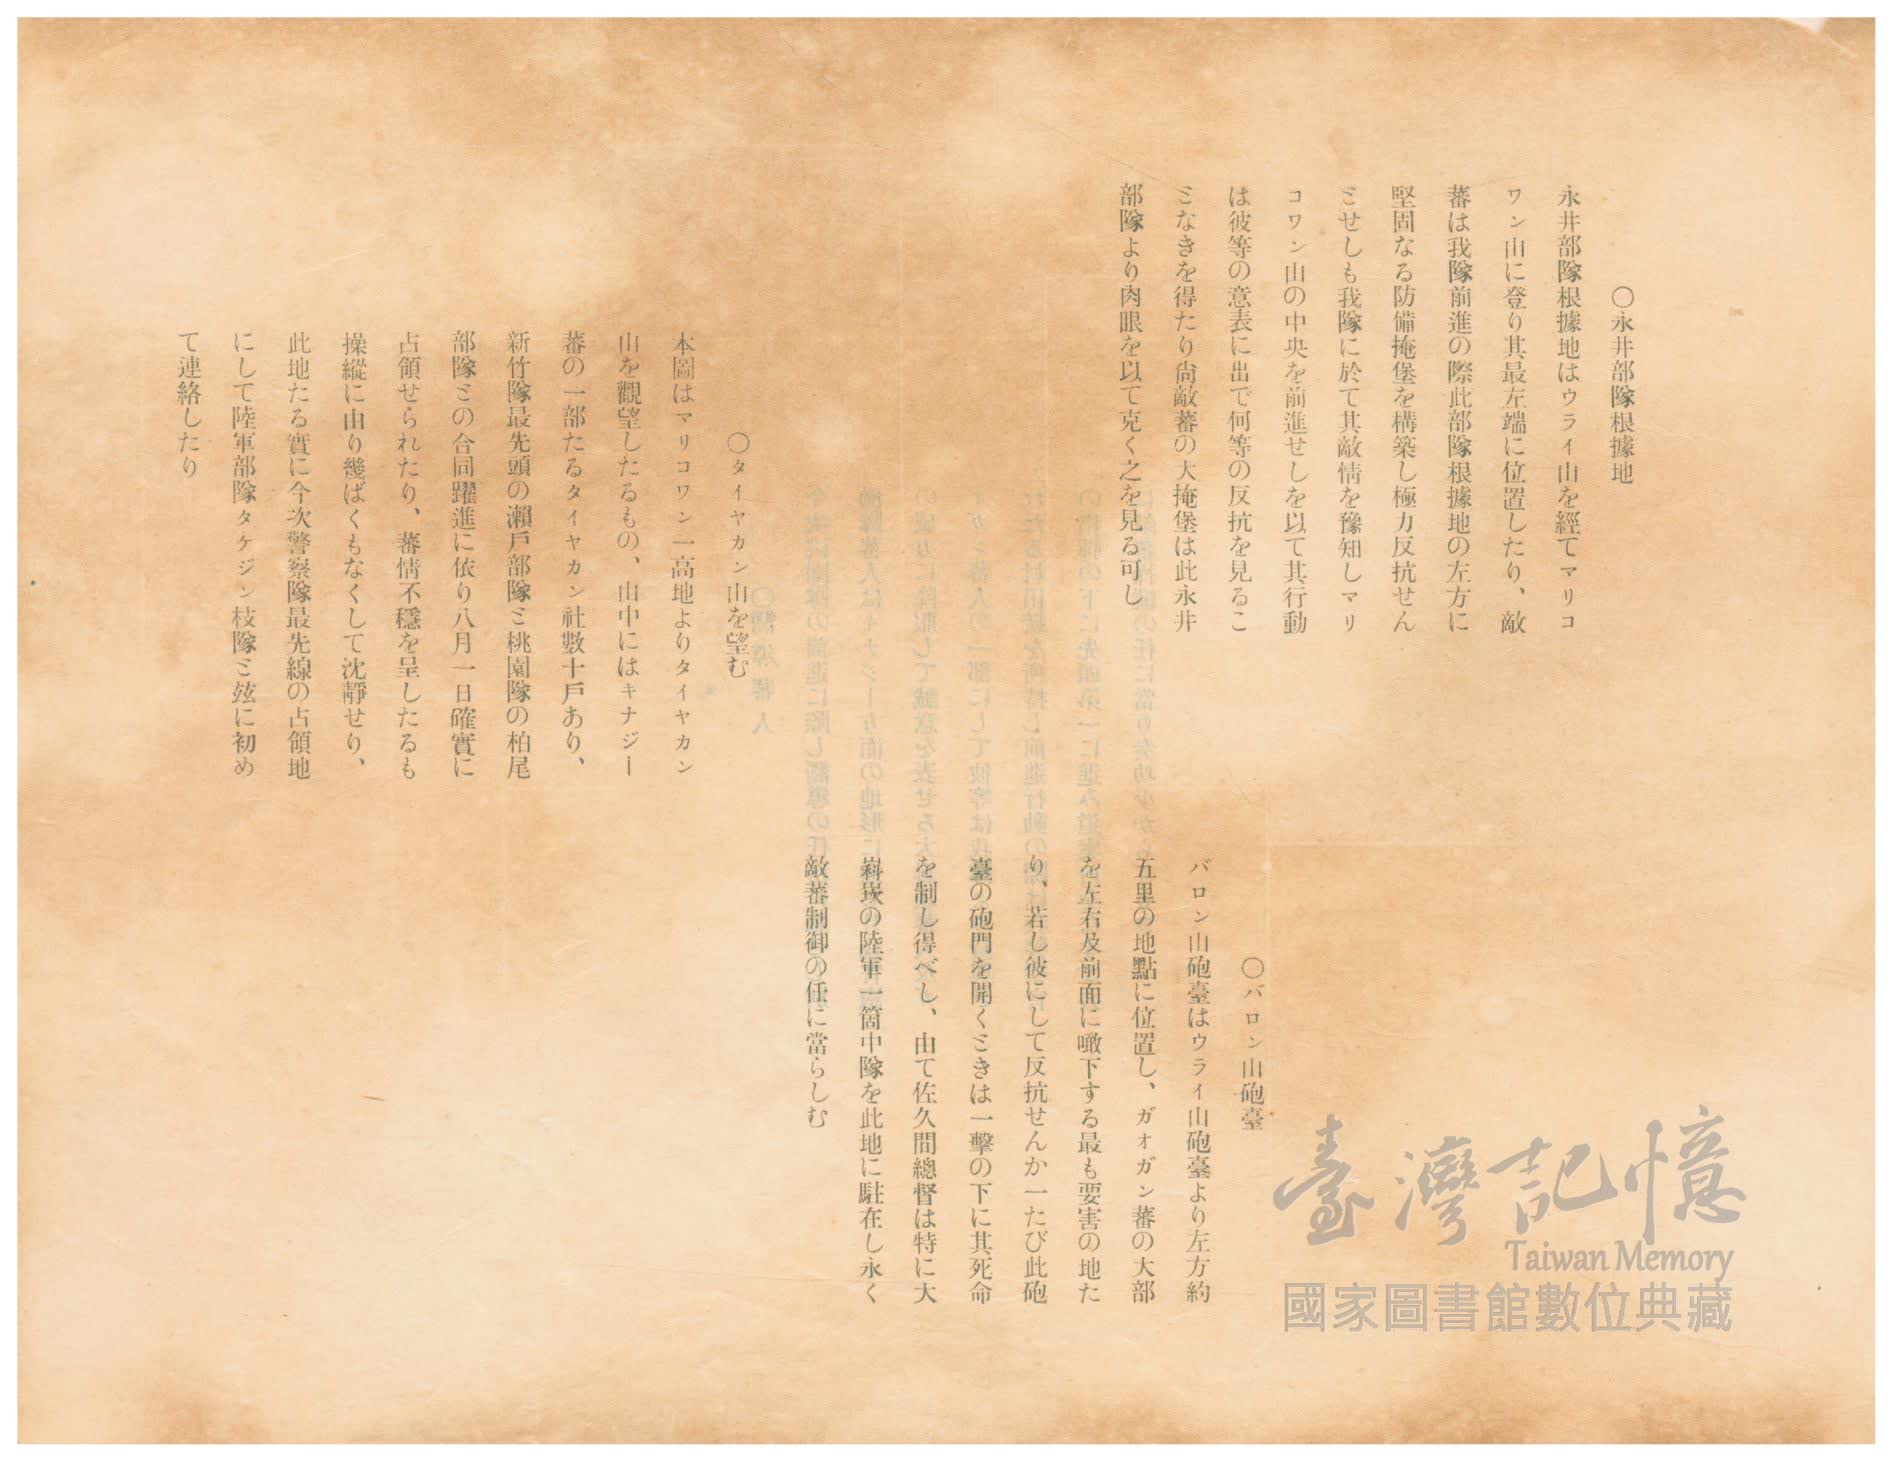 〇永井部隊根據地
永井部隊根據地はウライ山を經てマリコ
ワン山に登り其最左端に位置したり、敵
蕃は我隊前進の際此部隊根據地の左方に
堅固なる防備掩堡を構築し極力反抗せん
ミせしも我隊に於て其敵情を豫知しマリ
コワン山の中央を前進せしを以て其行動
は彼等の意表に出で何等の反抗を見るこ
ミなきを得たり尙敵蕃の大掩堡は此永井
部隊より肉眼を以て克く之を見る可し
〇バロン山砲臺
バロン山砲臺はウライ山砲臺より左方約
五里の地點に位置し、ガオガン蕃の大部
を左右及前面に瞰下する最も要害の地た
り、若し彼にして反抗せんか一たび此砲
臺の砲門を開くミきは一擊の下に其死命
を制し得べし、由て佐久間總督は特に大
嵙崁の陸軍一箇中隊を此地に駐在し永く
敵蕃制御の任に當らしむ
〇タイヤカン山を望む
本圖はマリコワン一高地よりタイヤカン
山を觀望したるもの、山中にはキナジー
蕃の一部たるタイヤカン社數十戶あり、
新竹隊最先頭の瀨戶部隊ミ桃園隊の柏尾
部隊ミの合同躍進に依り八月一日確實に
占領せられたり、蕃情不穩を呈したるも
操縱に由り幾ばくもなくして沈靜せり、
此地たる實に今次警察隊最先線の占領地
にして陸軍部隊タケジン枝隊ミ玆に初め
て連絡したり
臺灣記憶
Taiwan Memory
國家圖書館數位典藏